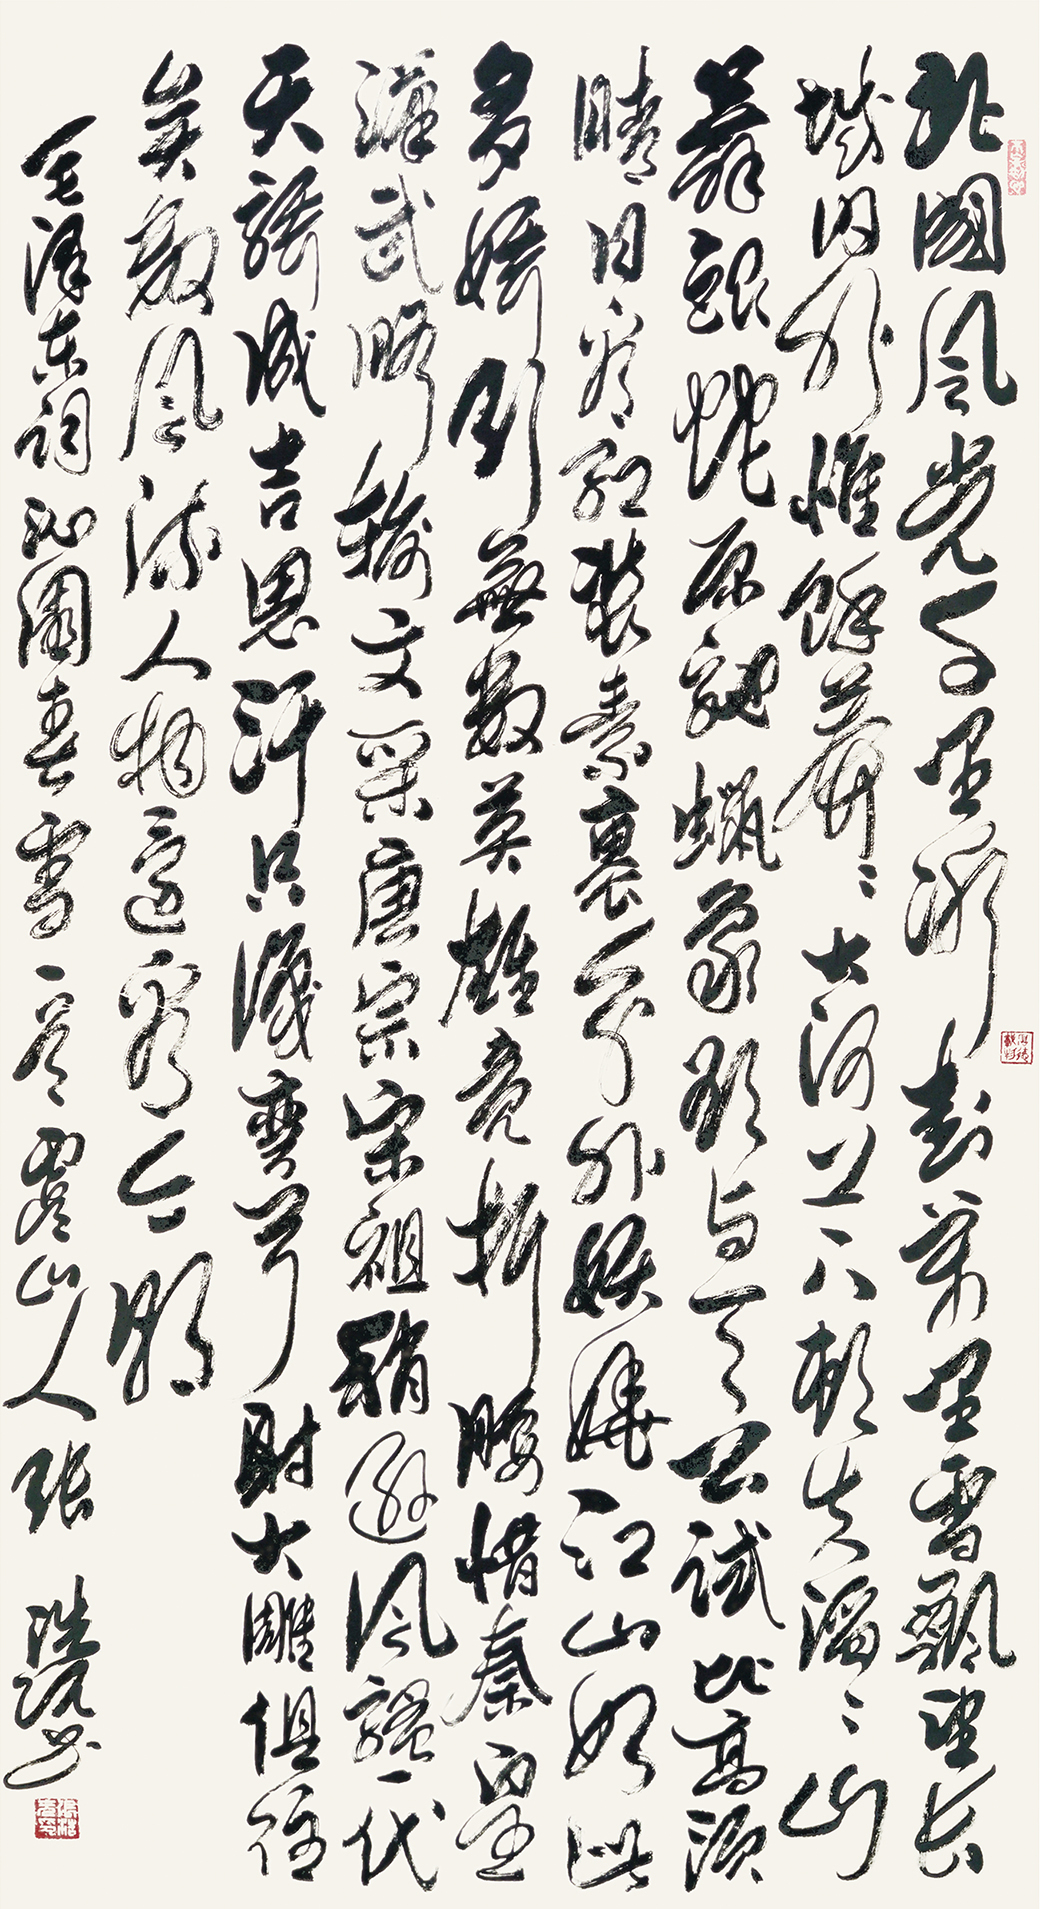 北國風光千里冰封萬里雪飄望長
城内外惟餘莽〻大河上下頓失滔〻山
舞銀蛇原馳蠟象欲与天公試比高須
晴日看紅裝素裹分外妖嬈江山如此
多嬌引無數英雄競折腰惜秦皇
漢武略輸文采唐宗宋祖稍遜風騷一代
天驕成吉思汗只識彎弓射大雕俱往
矣數風流人物還看今朝
毛澤東詞沁園春雪一首山人張浩书